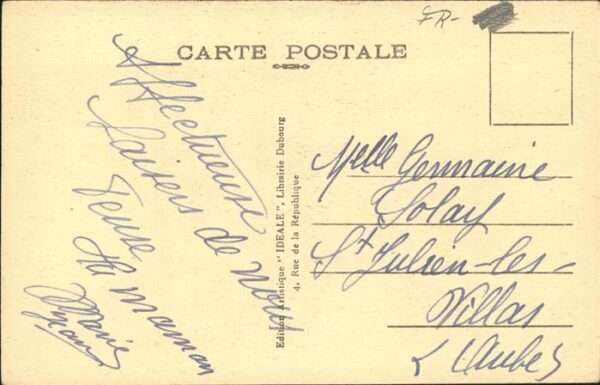 FR-
CARTE POSTALE
Affectueux
baisers de
ta maman
Edition Artistique "IDEALE", Librairie Dubourg
4, Rue de la République
Melle Germaine
Solay
St Julien-les-
Villas
(Aube)